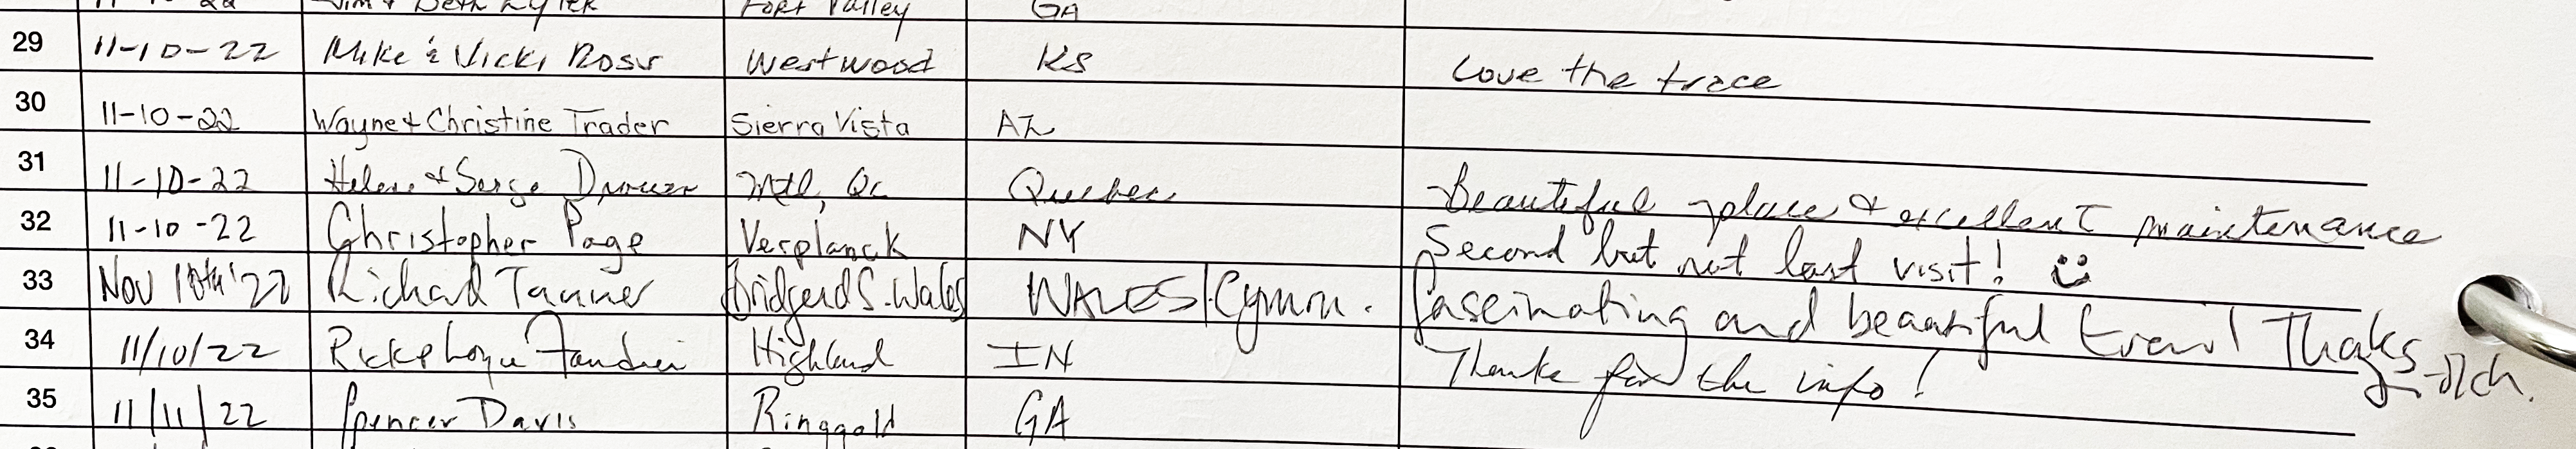 Fort Valley GA
29 11-10-22 Mike & Vicki Ross Westwood KS Love the trace
30 11-10-22 Wayne & Christine Trader Sierra Vista AZ
31 11-10-22 Helene & Serge Mtl, Qc Quebec Beautiful place & excellent maintenance
32 11-10-22 Christopher Page Verplanck NY Second but not last visit!
33 Nov 10th '22 Richard Tanner Bridgend S. Wales WALES/Cymru. fascinating and beautiful Thaks
34 11/10/22 Highland IN Thanks for the info!
35 11/11/22 Spencer Davis Ringgold GA